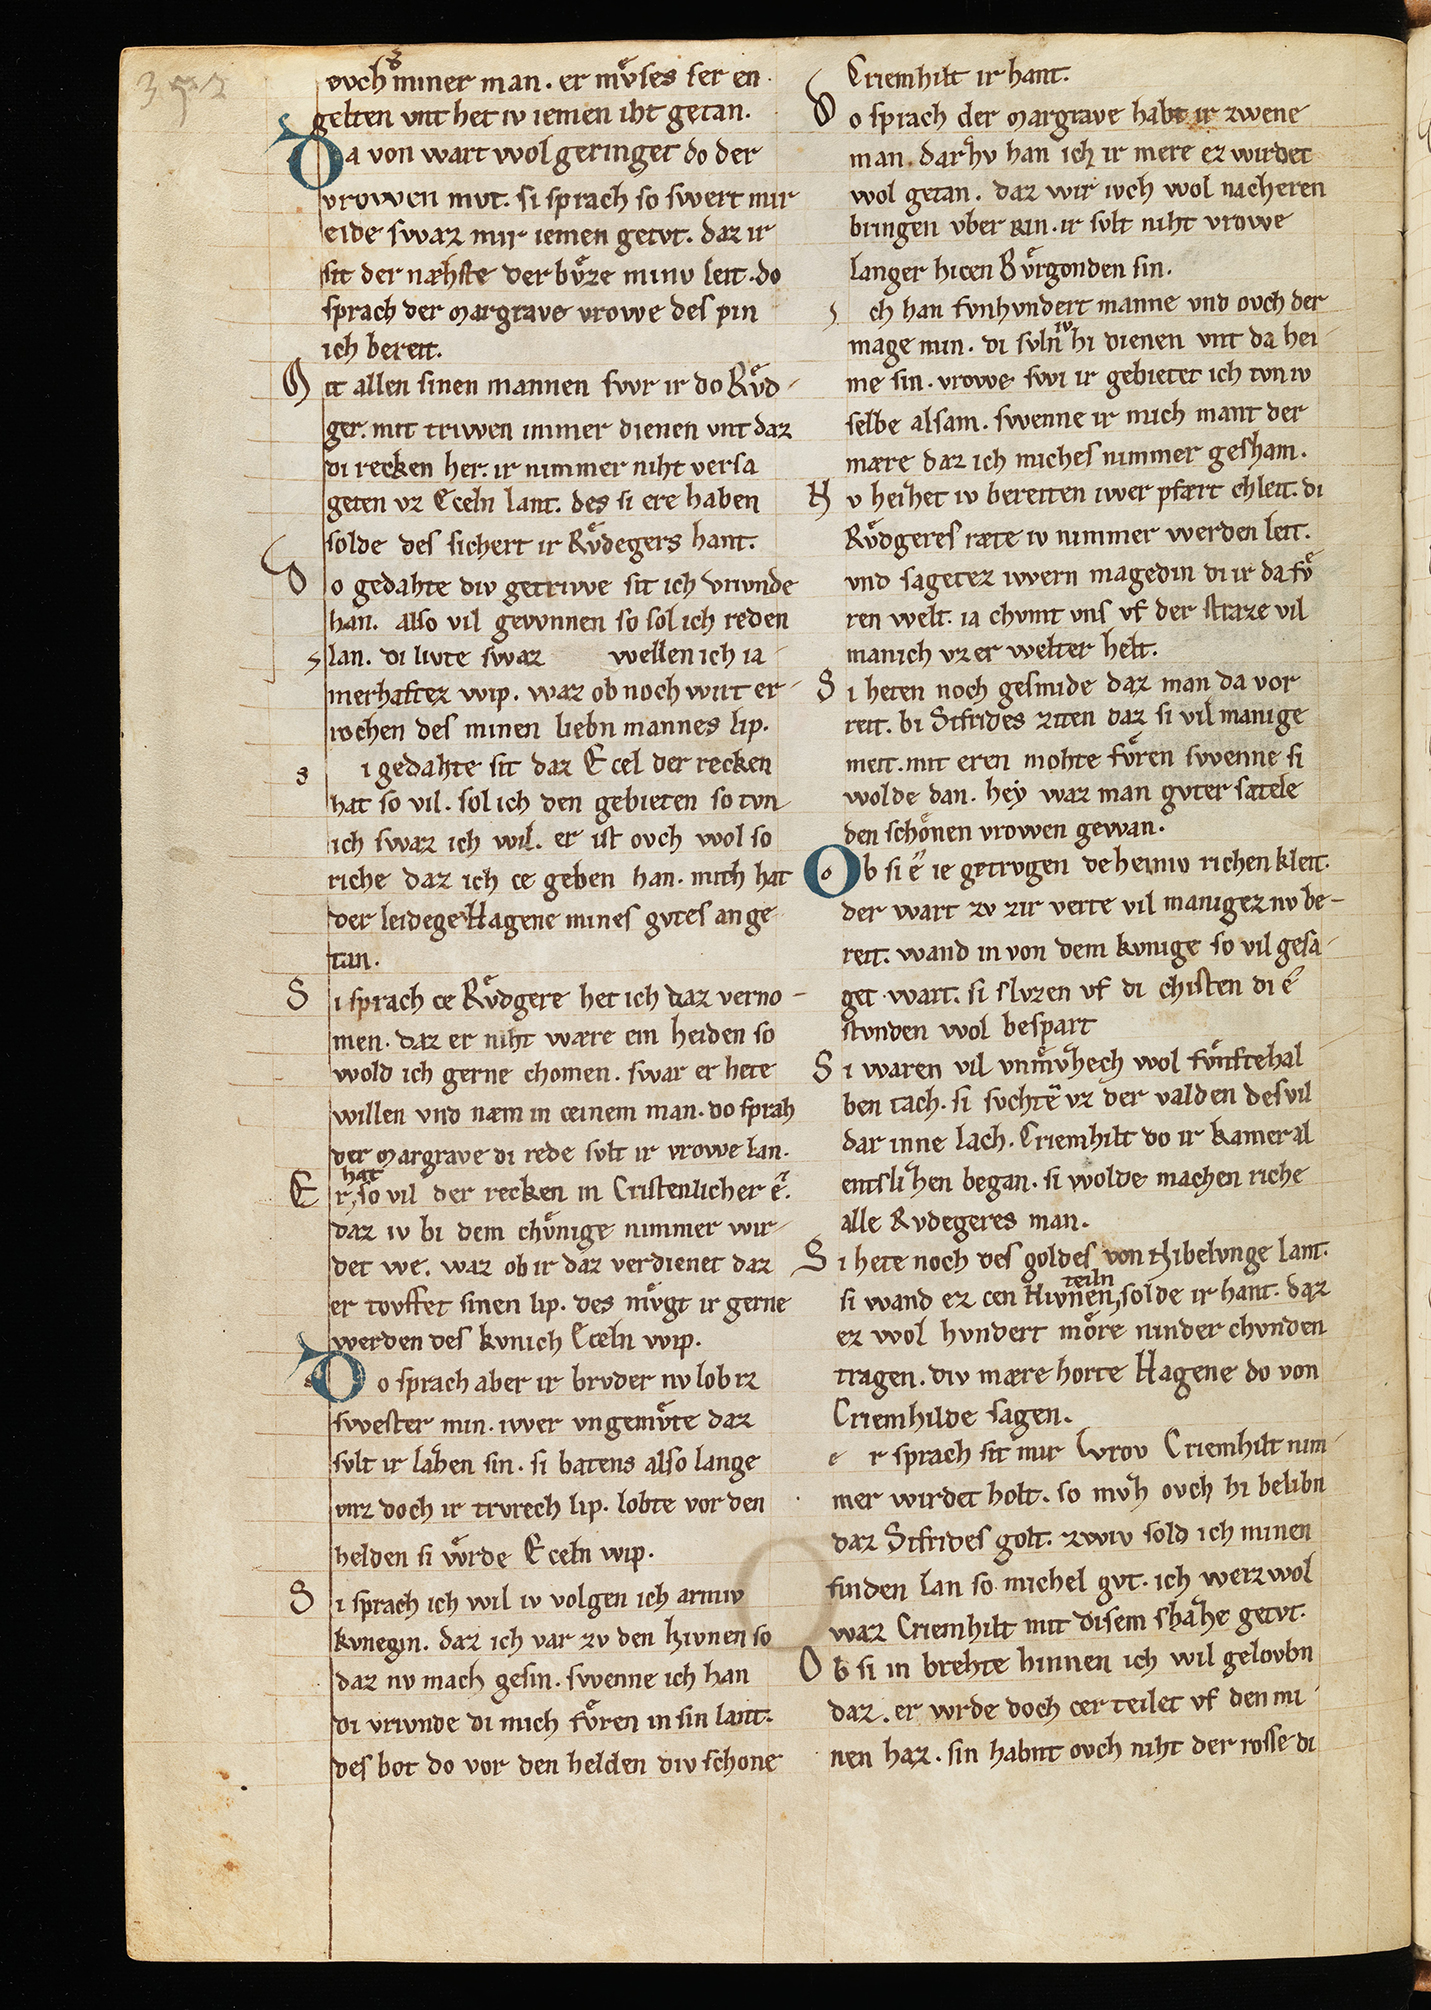 352
ovch miner man. er mvͦses ser en
gelten vnt het iv iemen iht getan.
Da von wart wol geringet do der
vrowen mvt. si sprach so swert mir
eide swaz mir iemen getvt. daz ir
sit der næhste der bvͤze minv leit. do
sprach der Margrave vrowe des pin
ich bereit.
Mit allen sinen mannen swr ir do Rvͤd-
ger. mit triwen immer dienen vnt daz
di recken her. ir nimmer niht versa
geten vz Eceln lant. des si ere haben
solde des sichert ir Rvͤdegers hant.
Do gedahte div getriwe sit ich vrivnde
han. also vil gewnnen so sol ich reden
lan. di livte swaz wellen ich ia-
merhaftez wip. waz ob noch wirt er-
rochen des minen liebn mannes lip.
si gedahte sit daz Ecel der recken
hat so vil. sol ich den gebieten so tvn
ich swaz ich wil. er ist ovch wol so
riche daz ich ce geben han. mich hat
der leidege Hagene mines gvtes an ge
tan.
Si sprach ce Rvͤdgere het ich daz verno-
men. daz er niht wære ein heiden so
wold ich gerne chomen. swar er hete
willen vnd næm in ceinem man. do sprah
der Margrave di rede svlt ir vrowe lan.
hat
Er, so vil der recken in Cristenlicher e.
daz iv bi dem chvͤnige nimmer wir-
det we. waz ob ir daz verdienet daz
er tovffet sinen lip. des mvͤgt ir gerne
werden des kvnich Eceln wip.
Do sprach aber ir brvder nv lob ez
swester min. iwer vngemvͤte daz
svlt ir lahen sin. si batens also lange
vnz doch ir trvrech lip. lobte vor den
helden si wͤrde Eceln wip.
Si sprach ich wil iv volgen ich armiv
kvnegin. daz ich var zv den hivnen so
daz nv mach gesin. swenne ich han
di vrivnde di mich fvͤren in sin lant.
des bot do vor den helden div schone
Criemhilt ir hant.
Do sprach der Margrave habt ir zwene
man. dar hv han ich ir mere ez wirdet
wol getan. daz wir ivch wol nach eren
bringen vber Rin. ir svlt niht vrowe
langer hicen Bvͤrgonden sin.
ich han fvnhvndert manne vnd ovch der
iv
mage min. di svln hi dienen vnt da hei
me sin. vrowe swi ir gebietet ich tvn iv
selbe alsam. swenne ir mich mant der
mære daz ich miches nimmer gesham.
Nv heihet iv bereiten iwer pfært chleit. di
Rvͤdgeres ræte iv nimmer werden leit.
vnd sagetez iwern magedin di ir da fvͤ
ren welt. ia chvmt vns vf der straze vil
manich vz er welter helt.
Si heten noch gesmide daz man da vor
reit. bi Sifrides ziten daz si vil manige
meit. mit eren mohte fvͤren swenne si
wolde dan. hey waz man gvter sætele
den schoͤnen vrowen gewan.
Ob si e ie getrvgen deheiniv richen kleit.
der wart zv zir verte vil manigez nv be-
reit. wand in von dem kvnige so vil gesa-
get wart. si slvzen vf di chisten di e
stvnden wol bespart
Si waren vil vnmvͤhech wol fvͤnftehal
ben tach. si svchtē vz der valden des vil
dar inne lach. Criemhilt do ir kamer al
entslihen began. si wolde machen riche
alle Rvdegeres man.
Si hete noch des goldes von Nibelvnge lant.
teiln
si wand ez cen Hivnen, solde ir hant. daz
ez wol hvndert moͤre ninder chvnden
tragen. div mære horte Hagene do von
Criemhilde sagen.
er sprach sit mir vrov Criemhilt nim-
mer wirdet holt. so mvh ovch hi belibn
daz Sifrides golt. zwiv sold ich minen
finden lan so michel gvt. ich weiz wol
waz Criemhilt mit disem shahe getvt.
Ob si in brehte hinnen ich wil gelovbn
daz. er wrde doch certeilet vf den mi-
nen haz. sin habnt ovch niht der rosse di